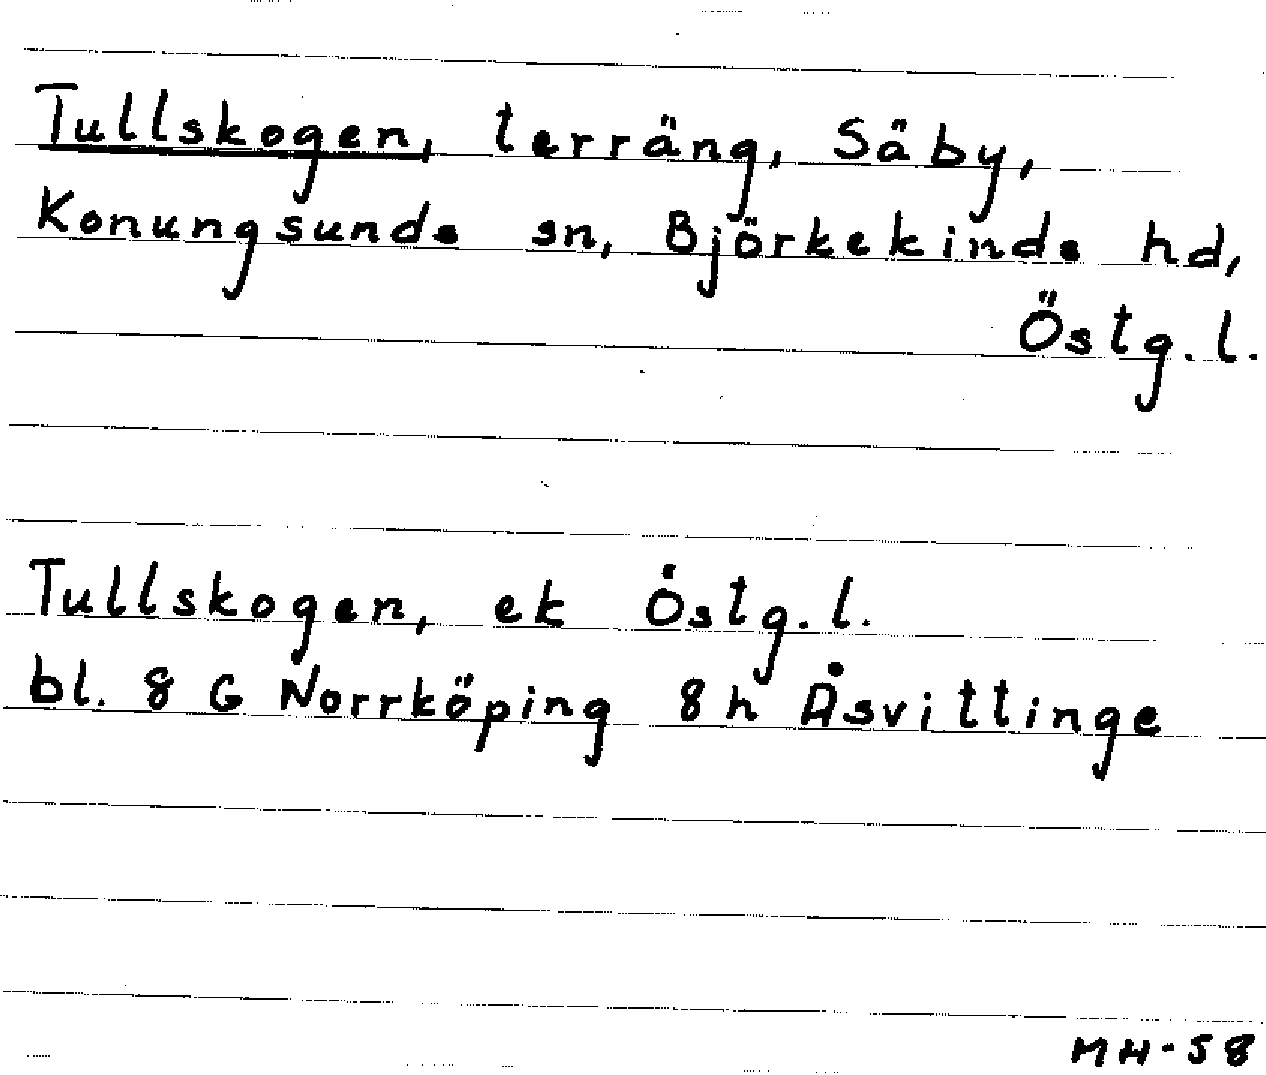 Tullskogen, terräng, Säby,
Konungsunds sn, Björkekinds hd,
Östg.l.
Tullskogen, ek Östg.l.
bl. 8 G Norrköping 8h Åsvittinge
MH-58